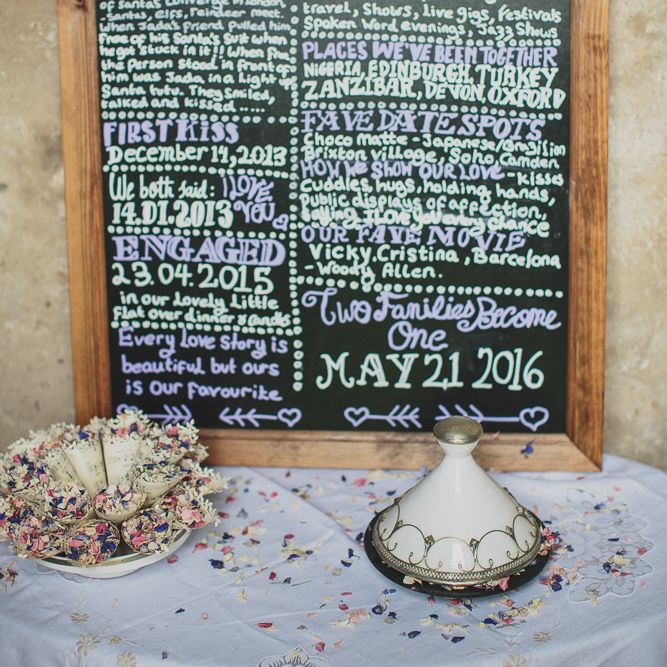 of santas converge in London
santas, elfs, reindeer meet
When Jada's friend Pulled on
of his Santa's Suit when
he got Stuck in it!! When fin
the person stood in front of
him was Jada in a Light up
Santa tutu. They Smiled,
talked and kissed.....
FIRST KISS
December 14, 2013
We both said: I LOVE
YOU
14.01.2013
ENGAGED
23.04.2015
in our Lovely Little
Flat over dinner & candles
Every Love Story is
beautiful but ours
is our favourite
travel, Shows, live gigs, festivals
Spoken Word evenings, Jazz Shows
PLACES WE'VE BEEN TOGETHER
NIGERIA, EDINBURGH, TURKEY
ZANZIBAR, DEVON OXFORD
FAVE DATE SPOTS
Choco Matte - Japanese/Brazilian
Brixton village, Soho, Camden
HOW WE SHOW OUR LOVE - kisses
Cuddles, hugs, holding, hands,
Public displays of affection,
saying I Love you every chance
OUR FAVE MOVIE
Vicky, Cristina, Barcelona
- Woody Allen.
Two Families Become
One
MAY 21 2016